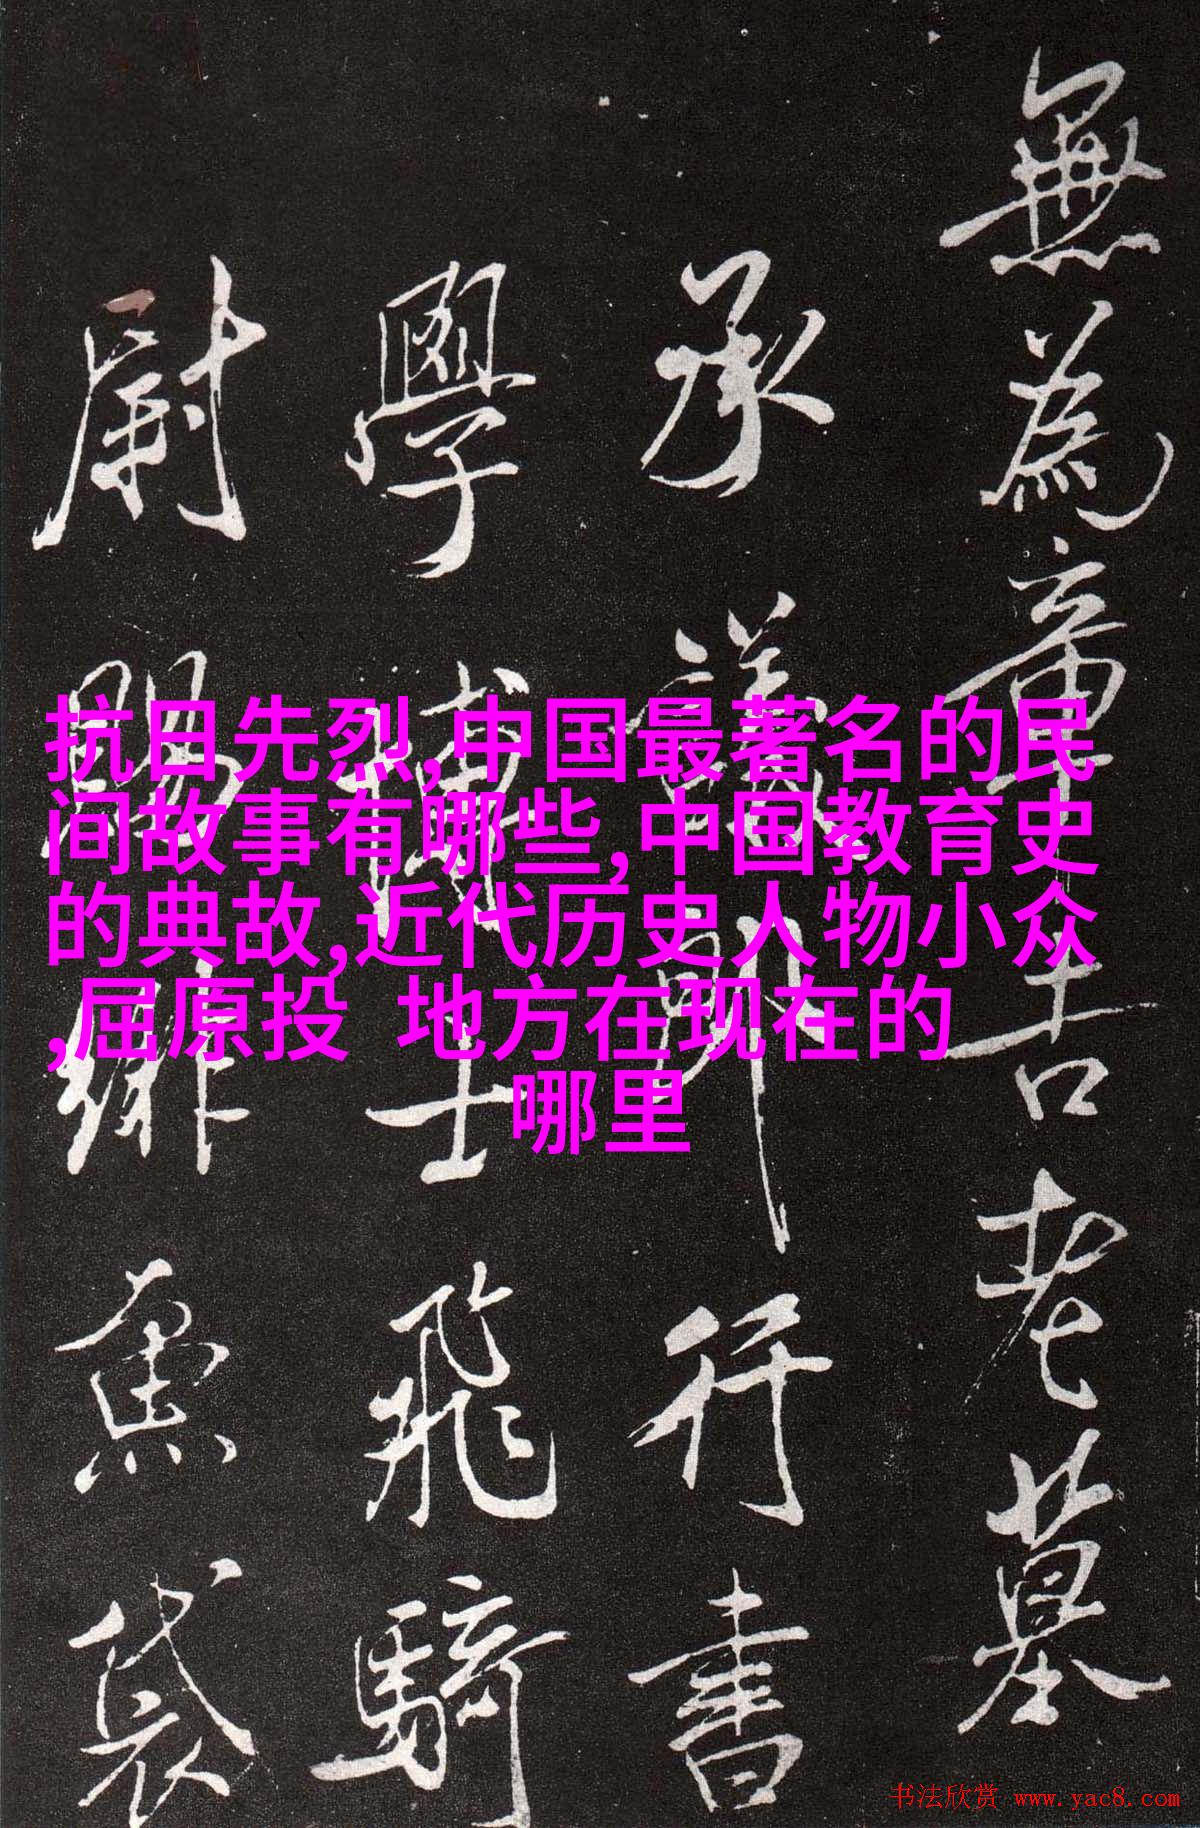 抗日先烈,中国最著名的民
间故事有哪些,中国教育史
的典故,近代历史人物小众
,屈原投 地方在现在的
哪里
無為帝王吉老墓
承議郎行書
學博士飛騎
尉賜緋魚袋
书法欣赏 www.yac8.com